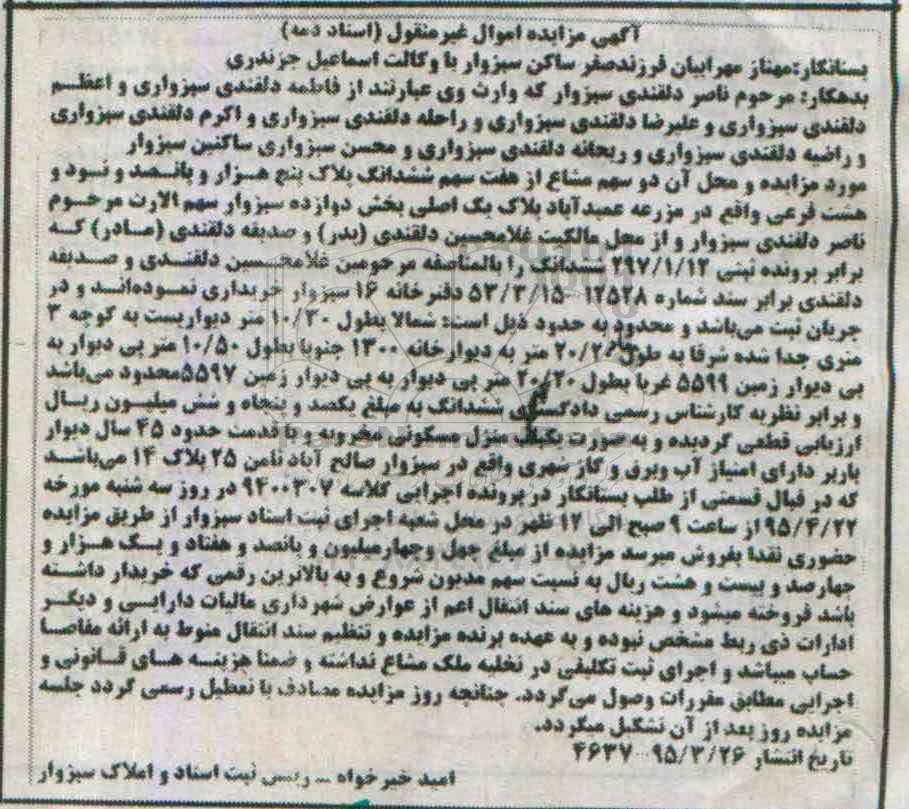 آگهی مزایده اموال غیرمنقول (اسناد ذمه)
بستانکار: مهناز مهرابیان فرزندصفر ساکن سبزوار با وکالت اسماعیل جزندری
بدهکار: مرحوم ناصر دلقندی سبزوار که وارث وی عبارتند از فاطمه دلقندی سبزواری و اعظم
دلقندی سبزواری و علیرضا دلقندی سبزواری و راحله دلقندی سبزواری و اکرم دلقندی سبزواری
و راضیه دلقندی سبزواری و ریحانه دلقندی سبزواری و محسن سبزواری ساکنین سبزوار
مورد مزایده و محل آن دو سهم مشاع از هفت سهم ششدانگ پلاک پنج هزار و پانصد و نود و
هشت فرعی واقع در مزرعه عمیدآباد پلاک یک اصلی بخش دوازده سبزوار سهم الارث مرحوم
ناصر دلقندی سبزوار و از محل مالکیت غلامحسین دلقندی (پدر) و صدیقه دلقندی (مادر) که
برابر پرونده ثبتی ۲۹۷/۱/۱۲ ششدانگ را بالمناصفه مرحومین غلامحسین دلقندی و صدیقه
دلقندی برابر سند شماره ۱۲۵۲۸-۵۳/۳/۱۵ دفترخانه ۱۶ سبزوار خریداری نموده‌اند و در
جریان ثبت می‌باشد و محدود به حدود ذیل است: شمالا بطول ۱۰/۳۰ متر دیواریست به کوچه ۳
متری جدا شده شرقا به طول ۲۰/۲۰ متر به دیوارخانه ۱۳۰۰ جنوبا بطول ۱۰/۵۰ متر پی دیوار به
پی دیوار زمین ۵۵۹۹ غربا بطول ۲۰/۲۰ متر پی دیوار به پی دیوار زمین ۵۵۹۷ محدود می‌باشد
و برابر نظریه کارشناس رسمی دادگستری ششدانگ به مبلغ یکصد و پنجاه و شش میلیون ریال
ارزیابی قطعی گردیده و به صورت یکباب منزل مسکونی مخروبه و با قدمت حدود ۴۵ سال دیوار
باربر دارای امتیاز آب وبرق و گاز شهری واقع در سبزوار صالح آباد ثامن ۲۵ پلاک ۱۴ می‌باشد
که در قبال قسمتی از طلب بستانکار در پرونده اجرایی کلاسه ۹۴۰۰۳۰۷ در روز سه شنبه مورخه
۹۵/۴/۲۲ از ساعت ۹ صبح الی ۱۲ ظهر در محل شعبه اجرای ثبت اسناد سبزوار از طریق مزایده
حضوری نقدا بفروش میرسد مزایده از مبلغ چهل وچهارمیلیون و پانصد و هفتاد و یک هزار و
چهارصد و بیست و هشت ریال به نسبت سهم مدیون شروع و به بالاترین رقمی که خریدار داشته
باشد فروخته میشود و هزینه های سند انتقال اعم از عوارض شهرداری مالیات دارایی و دیگر
ادارات ذی ربط مشخص نبوده و به عهده برنده مزایده و تنظیم سند انتقال منوط به ارائه مفاصا
حساب میباشد و اجرای ثبت تکلیفی در تخلیه ملک مشاع نداشته و ضمنا هزینه های قانونی و
اجرایی مطابق مقررات وصول می‌گردد. چنانچه روز مزایده مصادف با تعطیل رسمی گردد جلسه
مزایده روز بعد از آن تشکیل میگردد.
تاریخ انتشار ۹۵/۳/۲۶ ۴۶۳۷
امید خیرخواه – رئیس ثبت اسناد و املاک سبزوار